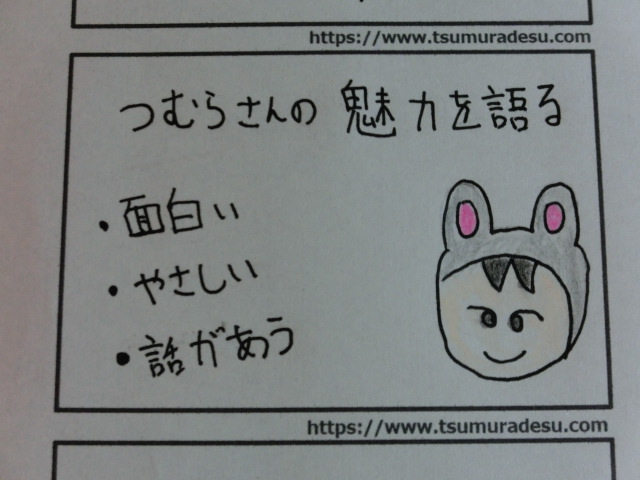 https://www.tsumuradesu.com
つむらさんの 魅力を語る
・面白い
・やさしい
・話があう
https://www.tsumuradesu.com